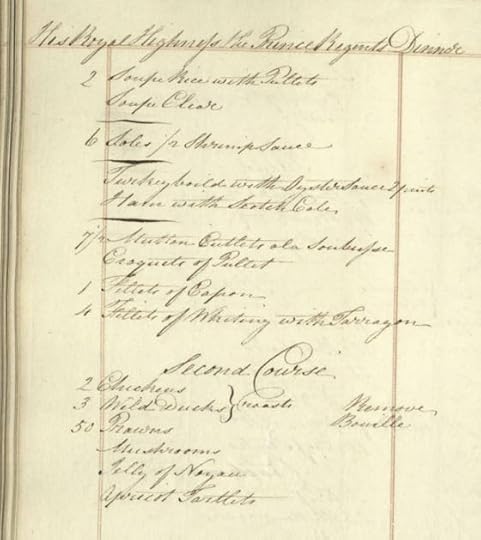 His Royal Highness the Prince Regents Dinner
2 Soupe Rice with Pullets
Soupe Clear
6 Soles 1/2 Shrimp Sauce
Turkey boild with Oyster Sauce 2 pints
Ham with Scotch Cole
7 1/2 Mutton Cutlets a la
Croquets of Pullet
1 Fillets of Capon
4 Fillets of Whiting with Tarragon
Second Course
2 Chickens
3 Wild Ducks } roasts Remove
50 Prawns Bouille
Mushrooms
Jelly of Noyau
Apricot Tartlets